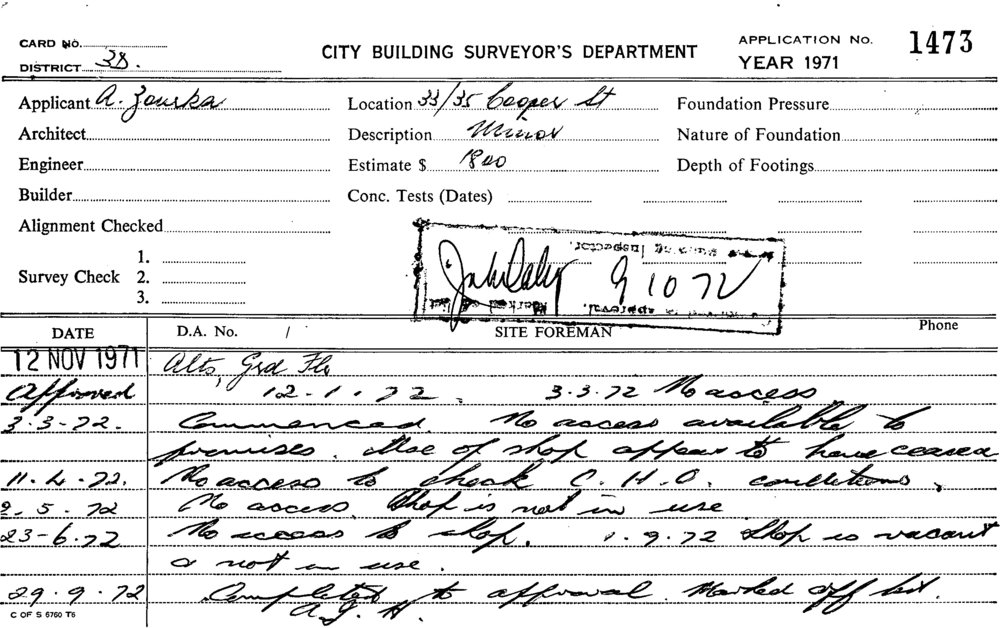 CARD NO.
DISTRICT 38.
CITY BUILDING SURVEYOR'S DEPARTMENT
APPLICATION No. 1473
YEAR 1971
Applicant A. Zourka
Location 33/35 Cooper St
Foundation Pressure
Architect
Description Minor
Nature of Foundation
Engineer
Estimate $ 1800
Depth of Footings
Builder
Conc. Tests (Dates)
Alignment Checked
Survey Check 1.
2.
3.
Inspector.
9 10 72
DATE D.A. No. / SITE FOREMAN Phone
12 NOV 1971 Alts, Grd Flr
Approved 12.1.72. 3.3.72 No access
3.3.72. Commenced. No access available to
premises. Use of shop appear to have ceased
11.4.72. No access to check C.H.O. conditions.
2.5.72 No access. Shop is not in use
23-6.72 No access to shop. 1.9.72 Shop is vacant
& not in use.
29.9.72 Completed to approval. Marked off list.
A.J.H.
C OF S 6760 T6